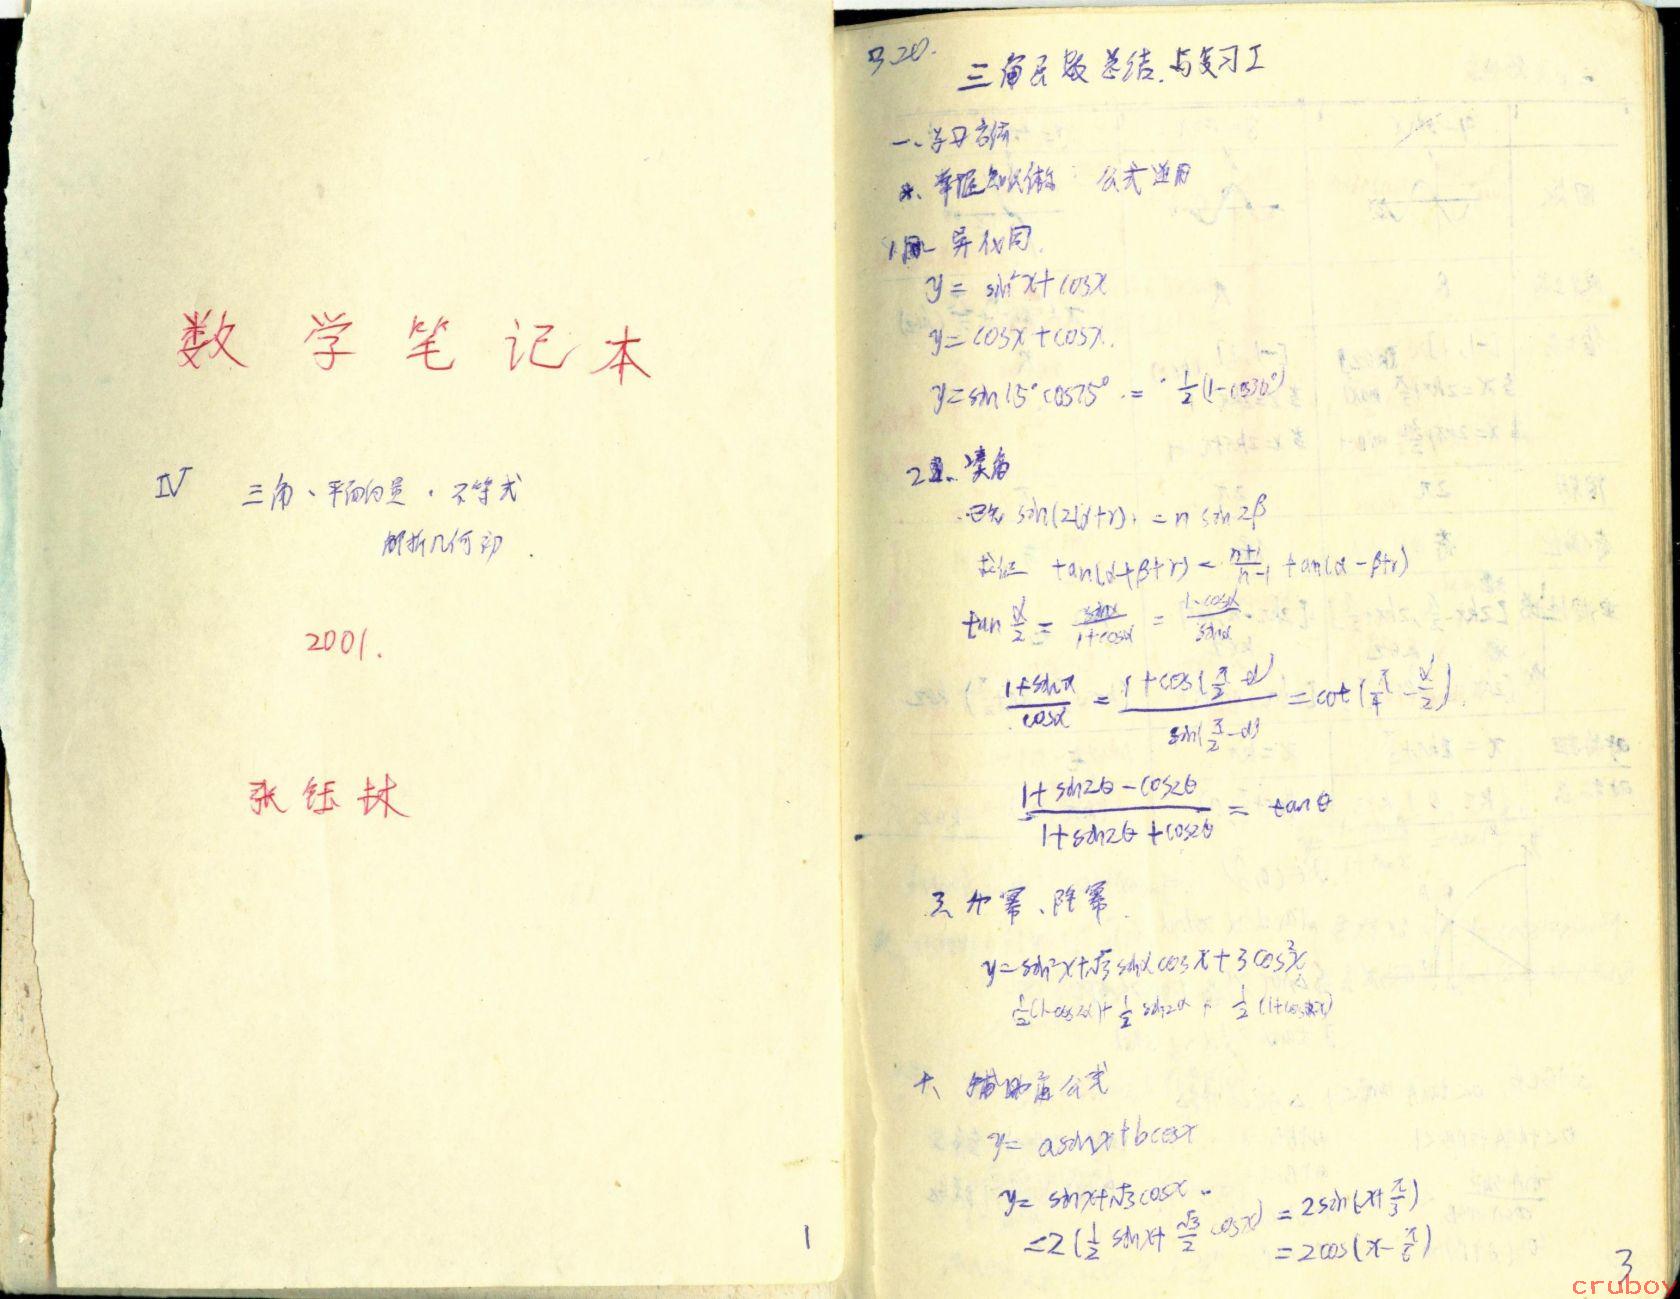 数 学 笔 记 本
IV 三角、平面向量、不等式
解析几何初.
2001.
张 钰 林
1
3.20.
三角函数总结、与复习 I
一、学习方法
掌握知识体系 公式运用
1 异化同.
y = sin²x + cosx
y = cosx + cosx.
y = sin15° cos75° = ½(1-cos30°)
2 凑角
已知 sin(2(α+r)) = n sin2β
求证 tan(α+β+r) = \frac{n+1}{n-1} tan(α-β+r)
tan\frac{α}{2} = \frac{sinα}{1+cosα} = \frac{1-cosα}{sinα}
\frac{1+sinα}{cosα} = \frac{1+cos(\frac{π}{2}-α)}{sin(\frac{π}{2}-α)} = cot(\frac{π}{4}-\frac{α}{2}).
\frac{1+sin2θ-cos2θ}{1+sin2θ+cos2θ} = tanθ
三、升幂、降幂.
y = sin²x+√3 sinx cosx + 3cos³x
½(1-cos2x)+½ sin2x + ½(1+cos2x)
十、辅助角公式
y = asinx+bcosx
y = sinx+√3cosx
=2(½ sinx+\frac{√3}{2} cosx) = 2sin(x+\frac{π}{3})
=2cos(x-\frac{π}{6})
3
cruboy